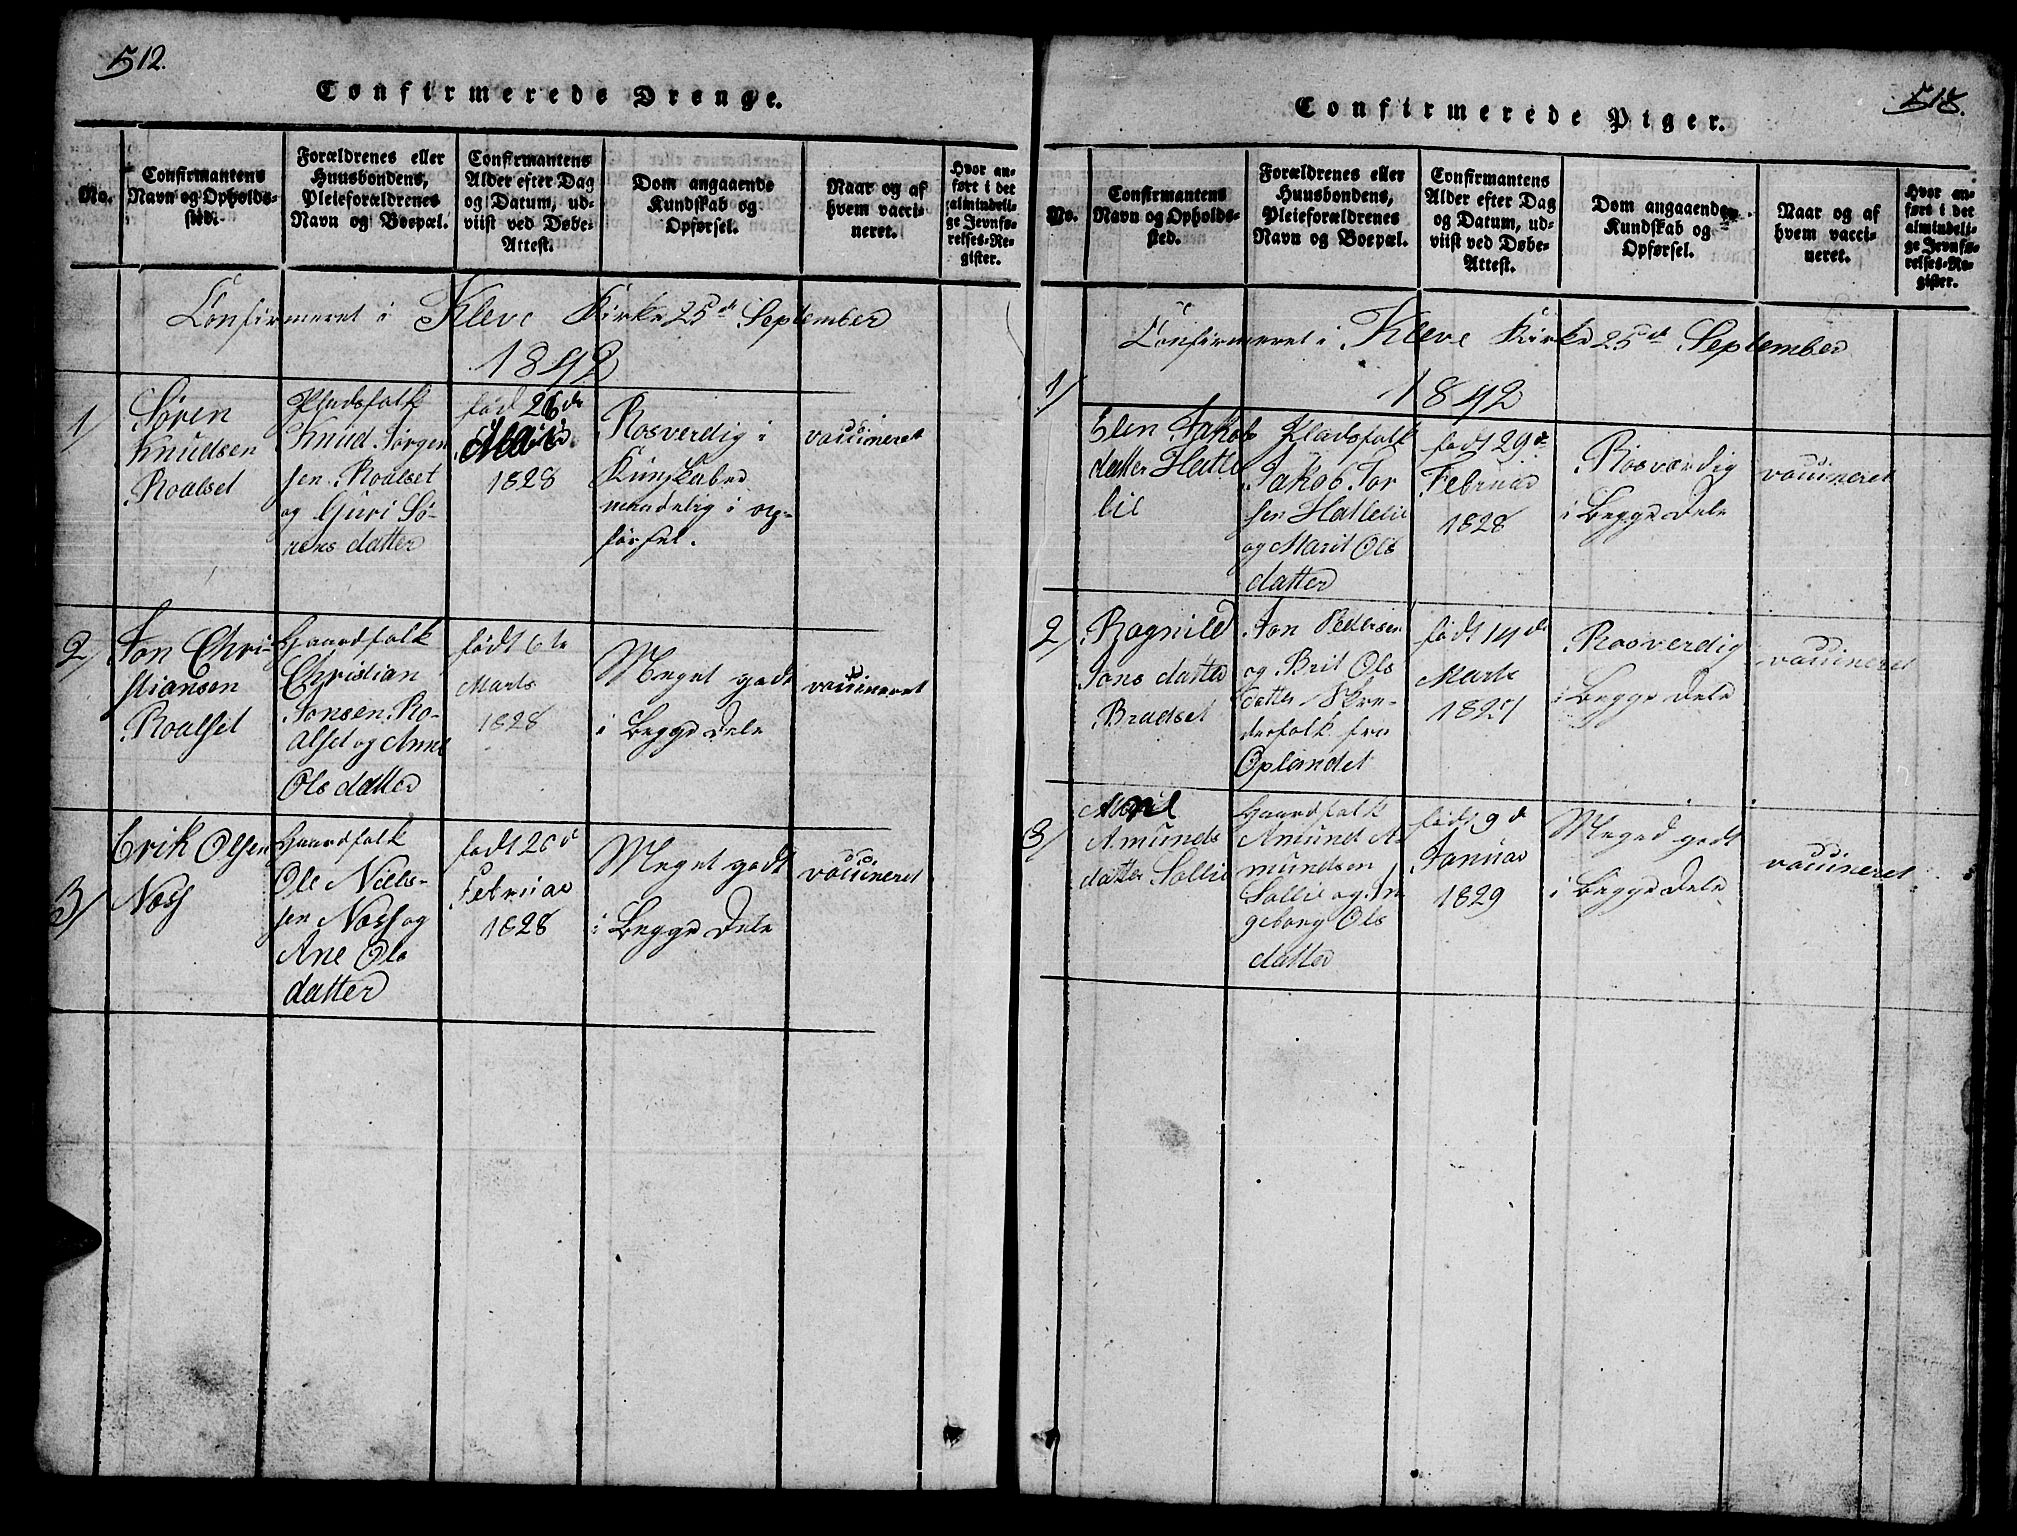 512.
Confirmerede Drenge.
No.
Confirmantens
Navn og Opholds-
sted.
Forældrenes eller
Huusbondens,
Pleieforældrenes
Navn og Boepæl.
Confirmantens
Alder efter Dag
og Datum, ud-
viist ved Døbe-
Attest.
Dom angaaende
Kundskab og
Opførsel.
Naar og af
hvem vacci-
neret.
Hvor an-
ført i det
almindeli-
ge Jevnfø-
relses-Re-
gister.
Confirmeret i Kleve Kirke 25de September
1842
1/
Søren
Knudsen
Roalset
Pladsfolk
Knud Jørgen
sen Roalset
og Guri Sø-
rens datter
født 26de
Mai
1828
Rosverdig i
Kunskaber
maadelig i op-
førsel.
vaccineret
2/
Jon Chri-
stiansen
Roalset
Gaardfolk
Christian
Jonsen Ro-
alset og Anne
Ols datter
født 6te
Marts
1828
Meget godt
i Begge Dele
vaccineret
3/
Erik Olsen
Næss
Gaardfolk
Ole Niels-
sen Næss og
Ane Ols
datter
født 20de
Februar
1828
Meget godt
i Begge Dele
vaccineret
513.
Confirmerede Piger.
No.
Confirmantens
Navn og Opholds-
sted.
Forældrenes eller
Huusbondens,
Pleieforældrenes
Navn og Boepæl.
Confirmantens
Alder efter Dag
og Datum, ud-
viist ved Døbe-
Attest.
Dom angaaende
Kundskab og
Opførsel.
Naar og af
hvem vacci-
neret.
Hvor an-
ført i det
almindeli-
ge Jevnfø-
relses-Re-
gister.
Confirmeret i Kleve Kirke 25de September
1842
1/
Elen Jakobs
datter Hatle
lie
Pladsfolk
Jakob Jor
sen Hatlelie
og Marit Ols
datter
født 29de
Februar
1828
Rosværdig
i Begge Dele
vaccineret
2/
Ragnild
Jons datter
Bradset
Jon Pedersen
og Brit Ols
datter Skre-
derfolk fra
Oplandet
født 14de
Marts
1827
Rosverdig
i Begge Dele
vaccineret
3/
Marit
Amunds
datter Sollie
Gaardfolk
Amund A-
mundsen
Sollie og In
geborg Ols
datter
født 9de
Januar
1829
Meged godt
i Begge Dele
vaccineret